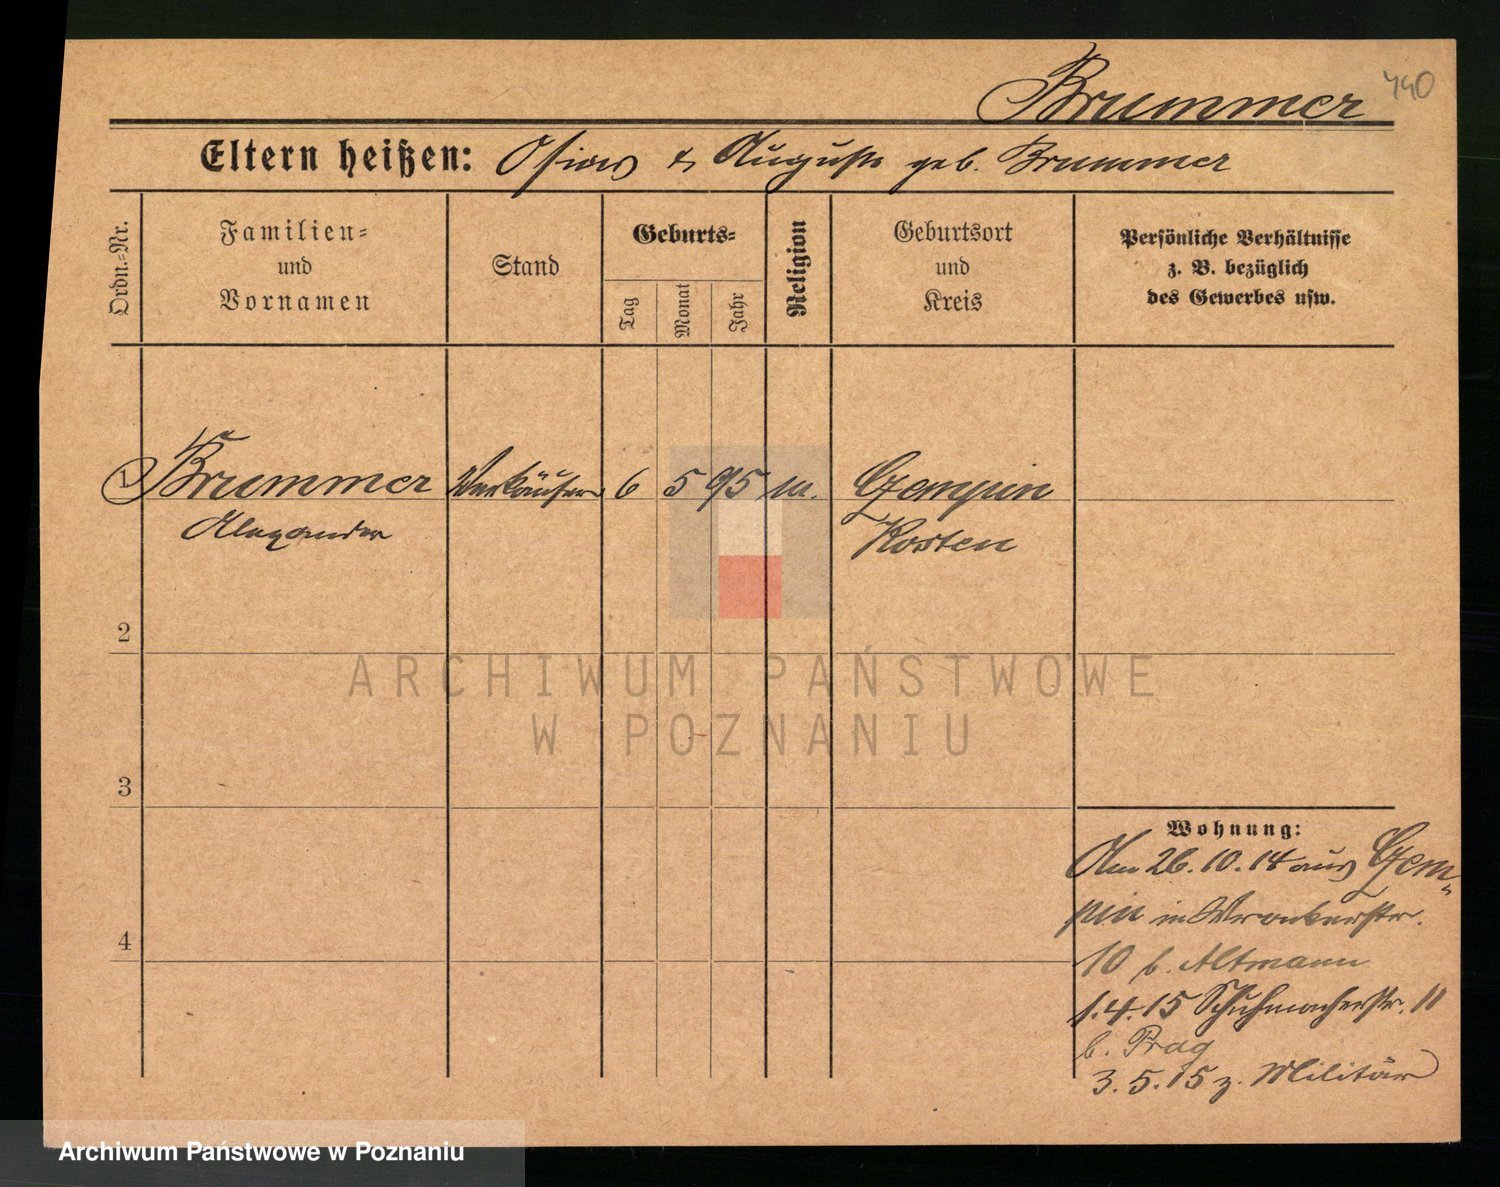 Brummer
440
Eltern heißen: Osias & Auguste geb. Brummer
Ordn.-Nr.
Familien-
und
Vornamen
Stand
Geburts-
Tag
Monat
Jahr
Religion
Geburtsort
und
Kreis
Persönliche Verhältnisse
z. B. bezüglich
des Gewerbes usw.
1 Brummer Verkäufer 6 5 95 m. Czempin
Alexander Kosten
2
3
4
Wohnung:
Am 26.10.14 aus Czem-
pin in Wronkerstr.
10 b. Altmann
1.4.15 Schuhmacherstr. 11
b. Prag
3.5.15 z. Militär
ARCHIWUM PAŃSTWOWE
W POZNANIU
Archiwum Państwowe w Poznaniu